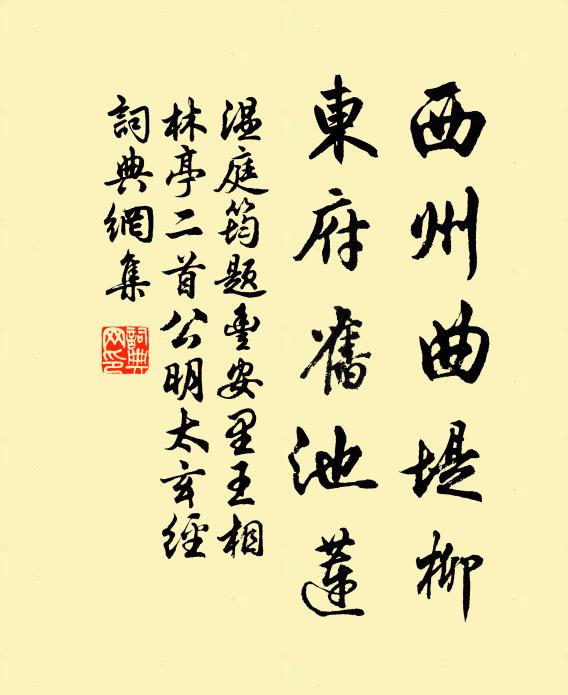 西州曲堤柳
東府舊池蓮
温庭筠題豊安里王相
林亭二首公明太玄經
詞典網集
詞典網印